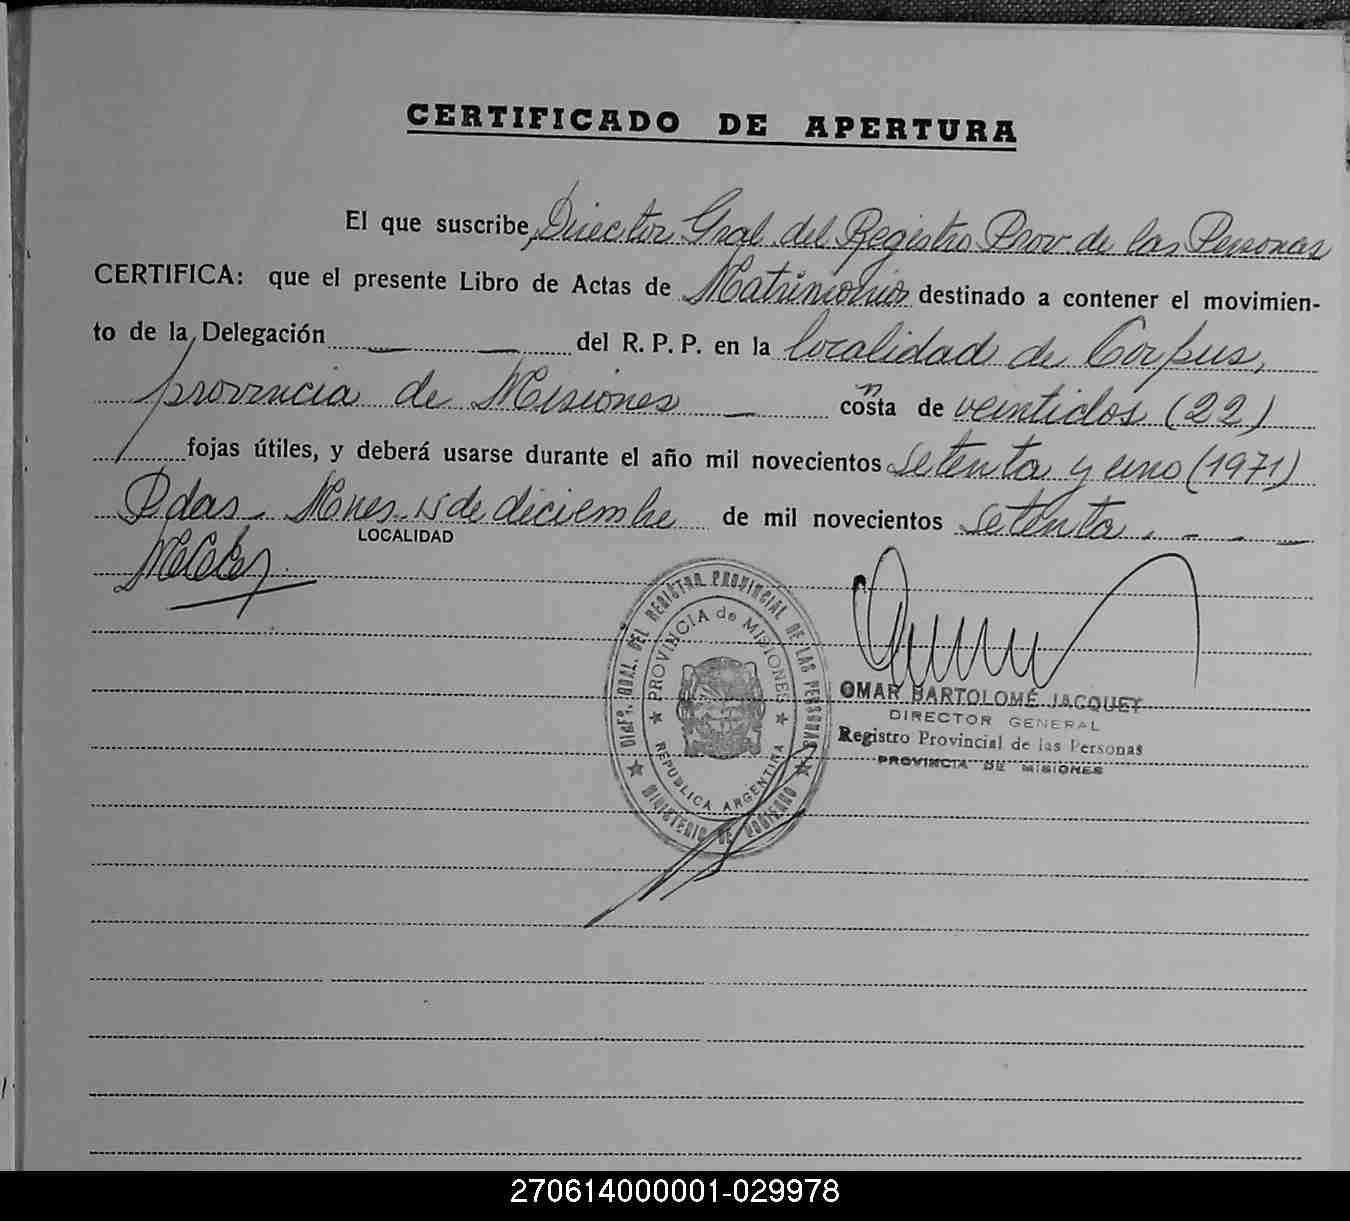 CERTIFICADO DE APERTURA
El que suscribe, Director Gral del Registro Prov. de las Personas
CERTIFICA: que el presente Libro de Actas de Matrimonios destinado a contener el movimien-
to de la Delegación — — del R. P. P. en la localidad de Corpus,
provincia de Misiones — consta de veintidos (22)
fojas útiles, y deberá usarse durante el año mil novecientos setenta y uno (1971)
Pdas. Mnes. 15 de diciembre de mil novecientos setenta . - . - —
LOCALIDAD
DIREC. GRAL. DEL REGISTRO PROVINCIAL DE LAS PERSONAS
PROVINCIA de MISIONES
REPUBLICA ARGENTINA
MINISTERIO DE GOBIERNO
OMAR BARTOLOMÉ JACQUET
DIRECTOR GENERAL
Registro Provincial de las Personas
PROVINCIA DE MISIONES
270614000001-029978